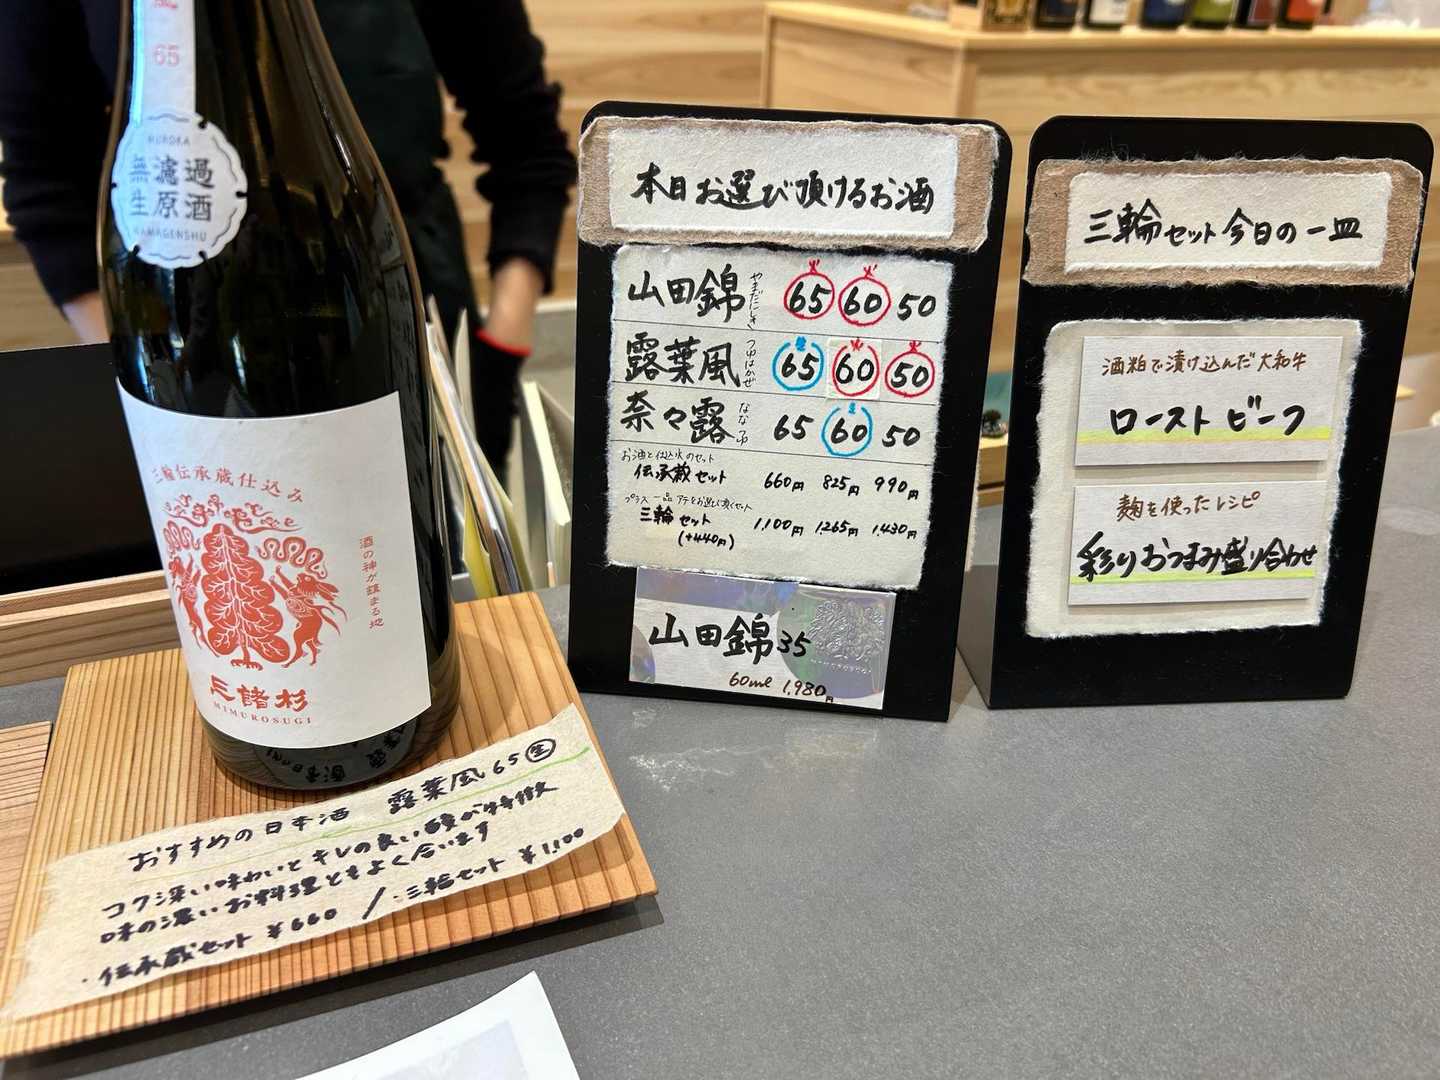 65
MUROKA
無濾過
生原酒
NAMAGENSHU
三輪伝承蔵仕込み
酒の神が鎮まる地
三諸杉
MIMUROSUGI
おすすめの日本酒 露葉風65 生
コク深い味わいとキレの良い酸が特徴
味の濃いお料理ともよく合います
・伝承蔵セット ¥660 / ・三輪セット ¥1,100
本日お選び頂けるお酒
山田錦 やまだにしき 火 65 火 60 50
露葉風 つゆはかぜ 生 65 火 60 火 50
奈々露 ななつゆ 65 生 60 50
お酒と仕込水のセット
伝承蔵セット 660円 825円 990円
プラス一品アテをお選び頂くセット
三輪セット 1,100円 1,265円 1,430円
(+440円)
山田錦35
60ml 1,980円
三輪セット今日の一皿
酒粕で漬け込んだ大和牛
ローストビーフ
麹を使ったレシピ
彩りおつまみ盛り合わせ